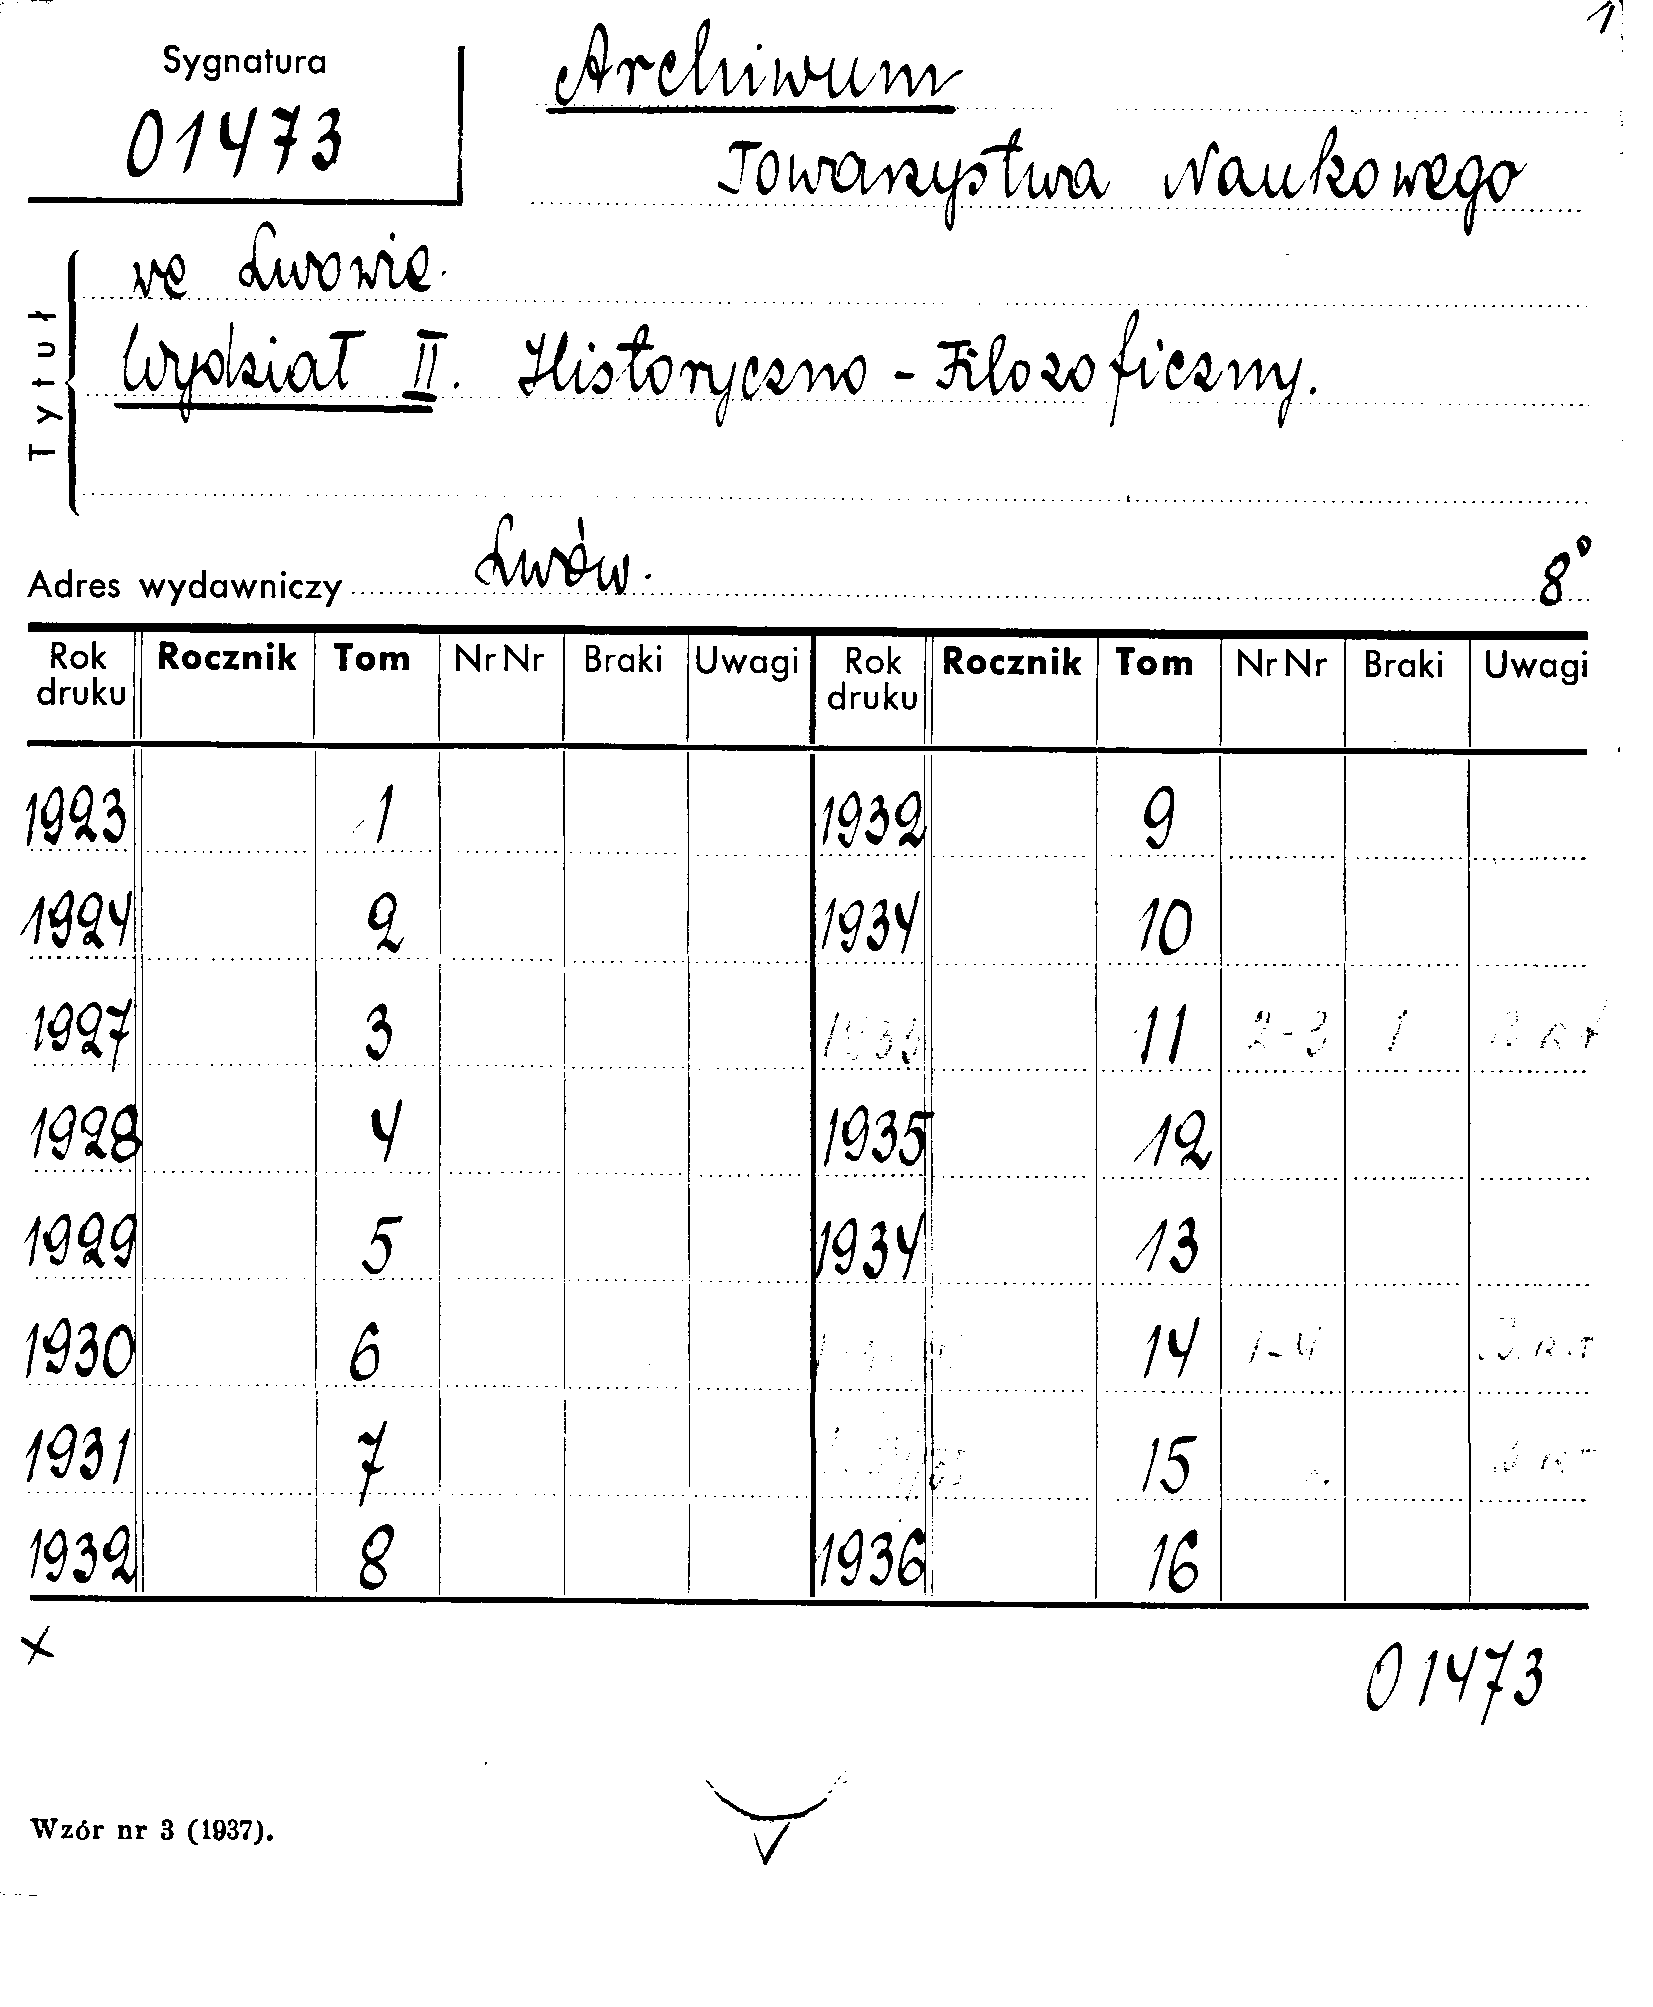 1
Sygnatura
01473
Archiwum
Towarzystwa Naukowego
we Lwowie.
Wydział II. Historyczno-Filozoficzny.
Tytuł
Adres wydawniczy Lwów. 8°
Rok druku Rocznik Tom Nr Nr Braki Uwagi Rok druku Rocznik Tom Nr Nr Braki Uwagi
1923 1 1932 9
1924 2 1934 10
1927 3 11 2-3 1
1928 4 1935 12
1929 5 1934 13
1930 6 14 1-4
1931 7 15
1932 8 1936 16
x
01473
Wzór nr 3 (1937).